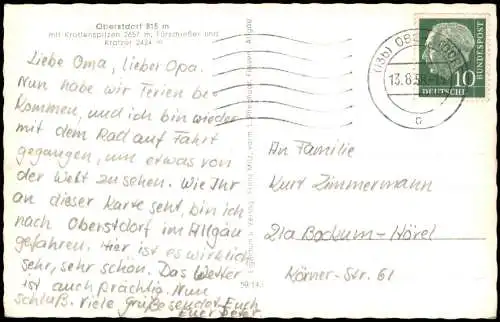 Oberstdorf 815 m
mit Krottenspitzen 2657 m, Fürschießer und
Kratzer 2424 m
Liebe Oma, lieber Opa.
Nun habe wir Ferien be-
kommen, und ich bin wieder
mit dem Rad auf Fahrt
gegangen, um etwas von
der Welt zu sehen. Wie Ihr
an dieser Karte seht, bin ich
nach Oberstdorf im Allgäu
gefahren. Hier ist es wirklich
sehr, sehr schön. Das Wetter
ist auch prächtig. Nun
Schluß. Viele Grüße sendet Euch
Euer Peter
59 143
(13b)
13.8.58
c
10
DEUTSCHE
BUNDESPOST
An Familie
Kurt Zimmermann
21a Bockum-Hövel
Körner-Str. 61